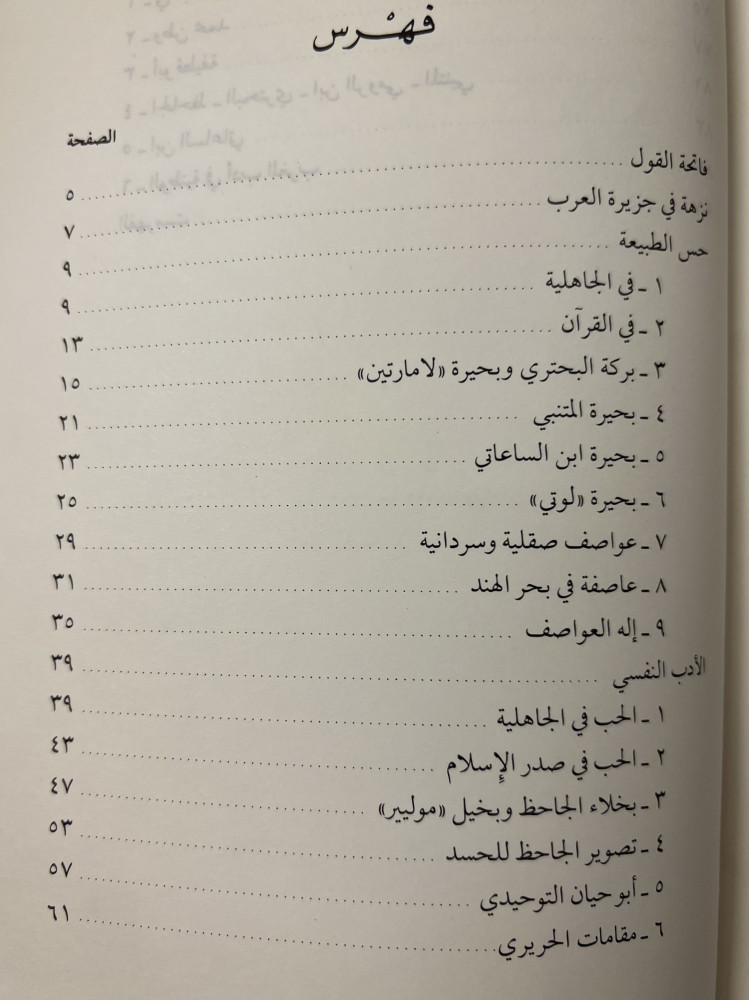 فهْرس
الصفحة
فاتحة القول ٥
نزهة في جزيرة العرب ٧
حس الطبيعة ٩
١ ـ في الجاهلية ٩
٢ ـ في القرآن ١٣
٣ ـ بركة البحتري وبحيرة «لامارتين» ١٥
٤ ـ بحيرة المتنبي ٢١
٥ ـ بحيرة ابن الساعاتي ٢٣
٦ ـ بحيرة «لوتي» ٢٥
٧ ـ عواصف صقلية وسردانية ٢٩
٨ ـ عاصفة في بحر الهند ٣١
٩ ـ إله العواصف ٣٥
الأدب النفسي ٣٩
١ ـ الحب في الجاهلية ٣٩
٢ ـ الحب في صدر الإسلام ٤٣
٣ ـ بخلاء الجاحظ وبخيل «موليير» ٤٧
٤ ـ تصوير الجاحظ للحسد ٥٣
٥ ـ أبو حيان التوحيدي ٥٧
٦ ـ مقامات الحريري ٦١